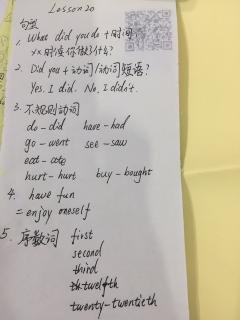 Lesson 20
句型
1. What did you do + 时间
xx时候你做了什么?
2. Did you + 动词/动词短语?
Yes, I did. No, I didn't.
3. 不规则动词
do - did have - had
go - went see - saw
eat - ate
hurt - hurt buy - bought
4. have fun
= enjoy oneself
5. 序数词 first
second
third
twelfth
twenty - twentieth